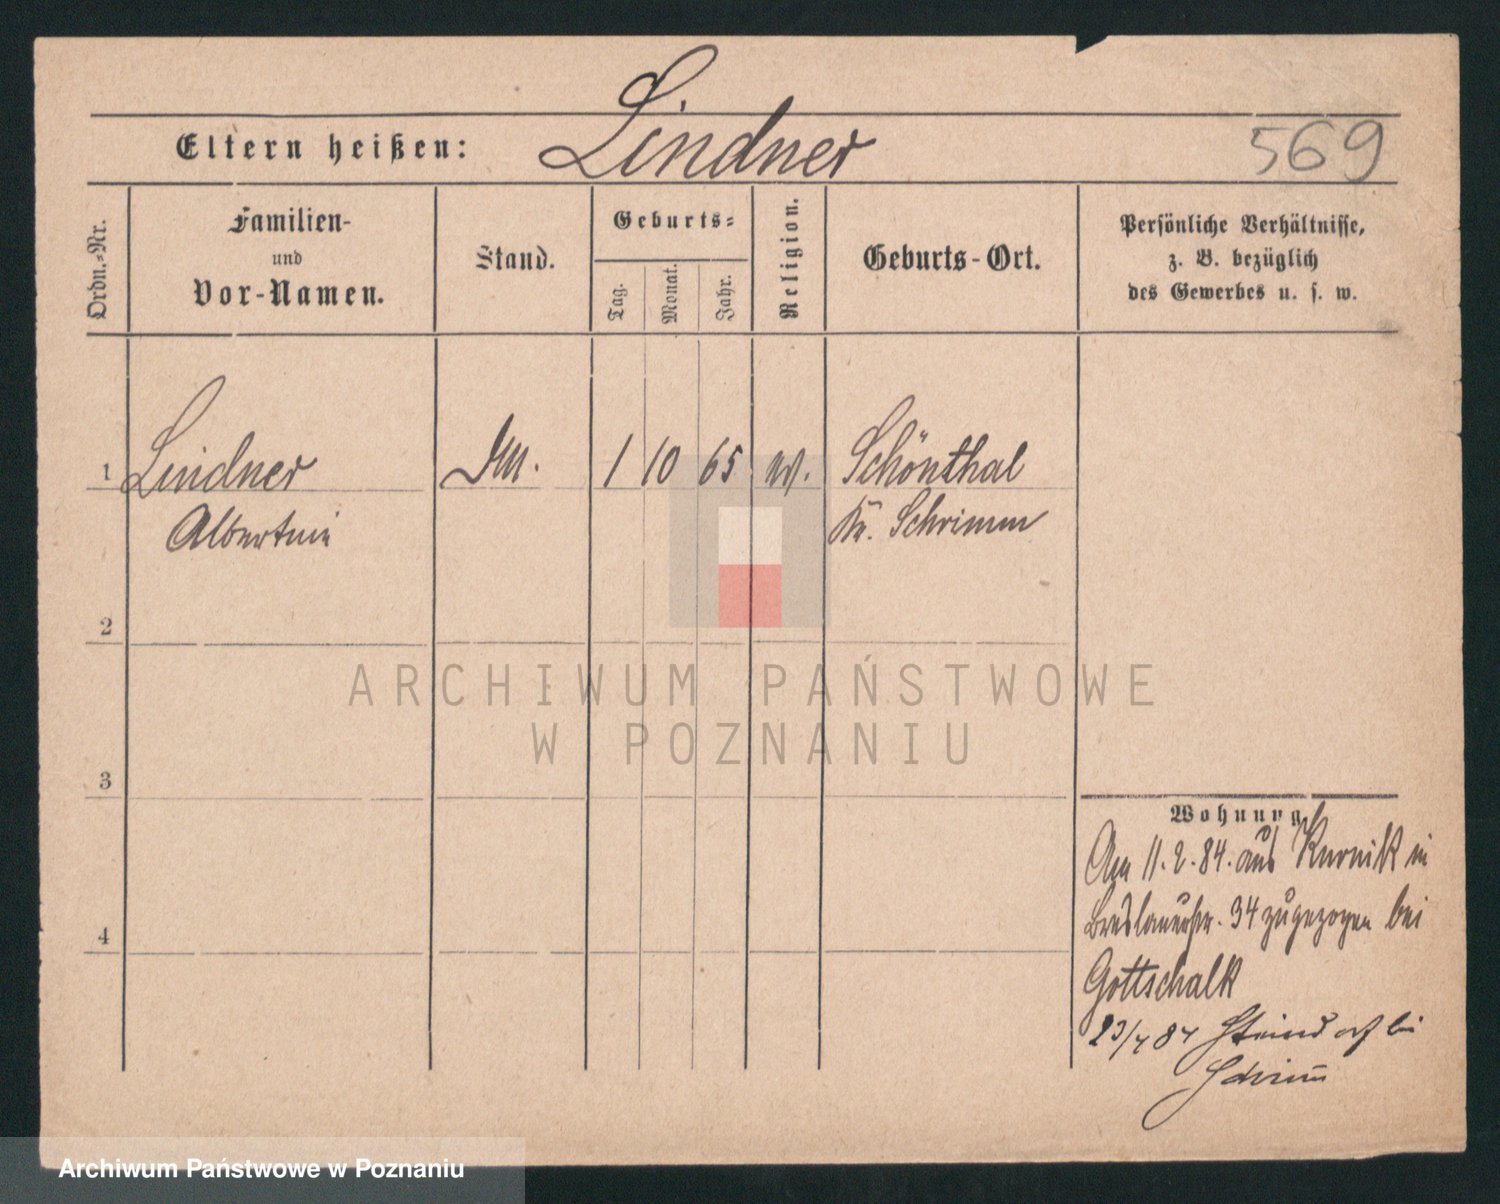 Eltern heißen: Lindner 569
Ordn.-Nr.
Familien-
und
Vor-Namen.
Stand.
Geburts-
Tag.
Monat.
Jahr.
Religion.
Geburts-Ort.
Persönliche Verhältnisse,
z. B. bezüglich
des Gewerbes u. s. w.
1 Lindner 1 10 65 Schönthal
Kr. Schrimm
2
3
4
Wohnung
Am 11.2.84. aus Kurnik in
Breslauerstr. 34 zugezogen bei
Gottschalk
Schrimm
ARCHIWUM PAŃSTWOWE
W POZNANIU
Archiwum Państwowe w Poznaniu